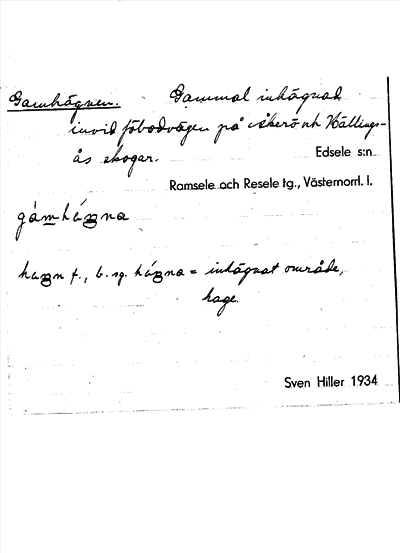 Gamhägnen. Gammal inhägnad
invid fäbodvägen på Åkerö och Hällings-
ås skogar.
Edsele s:n
Ramsele och Resele tg., Västernorrl. l.
gámháŋna
haŋn f., b. sg. háŋna = inhägnat område,
hage.
Sven Hiller 1934